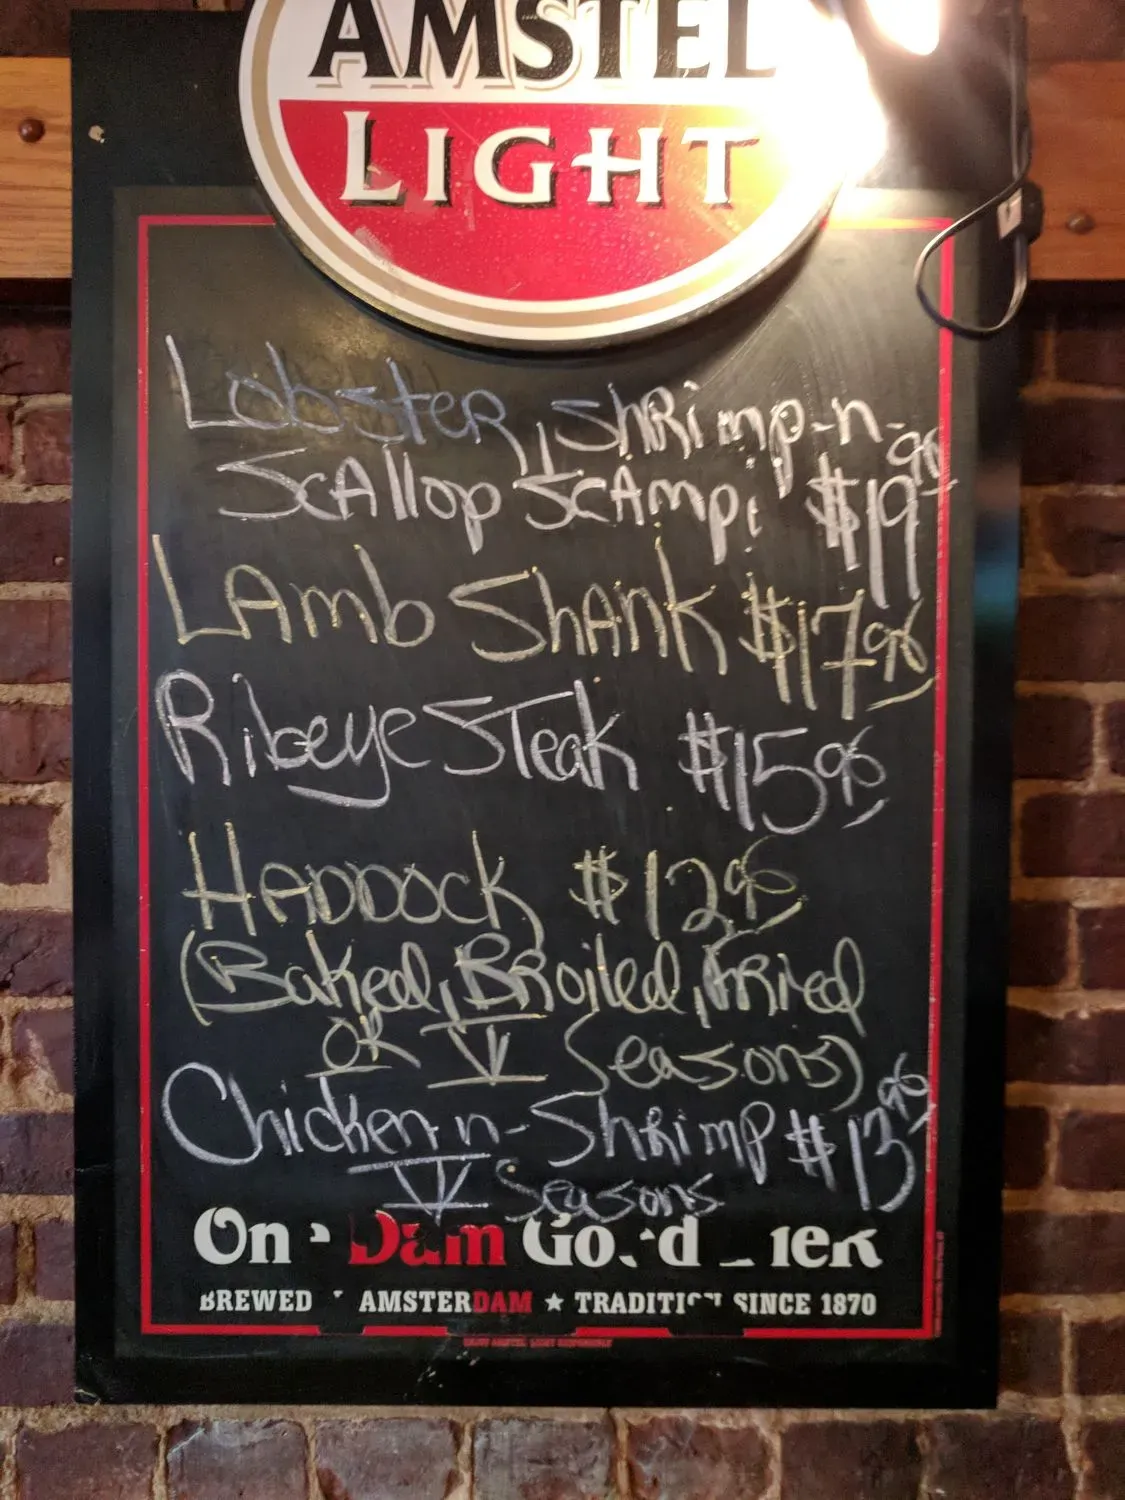 AMSTEL
LIGHT
Lobster, Shrimp-n-
Scallop Scampi $19.95
Lamb Shank $17.95
Ribeye Steak $15.95
Haddock $12.95
(Baked, Broiled, Fried
or V Seasons)
Chicken-n-Shrimp $13.95
V Seasons
One Dam Good Bier
BREWED AMSTERDAM ★ TRADITION SINCE 1870